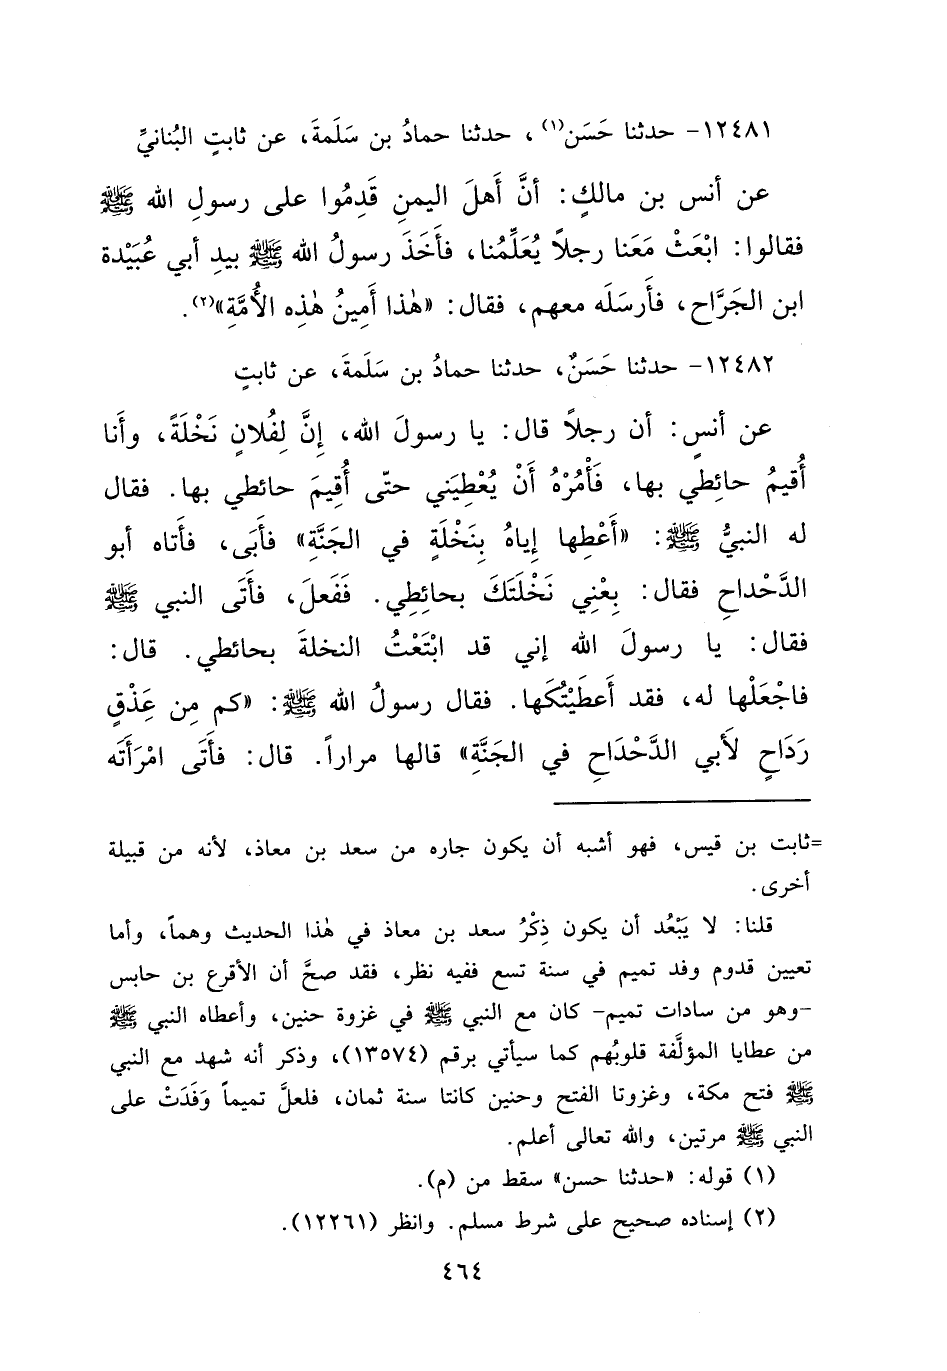 ١٢٤٨١- حدثنا حَسَن(١)، حدثنا حمادُ بن سَلَمةَ، عن ثابتٍ البُنانيِّ
عن أنس بن مالكٍ: أنَّ أَهلَ اليمنِ قَدِمُوا على رسولِ الله ﷺ
فقالوا: ابْعَثْ مَعَنا رجلاً يُعَلِّمُنا، فأَخَذَ رسولُ الله ﷺ بيدِ أبي عُبَيْدة
ابن الجَرَّاح، فأَرسَلَه معهم، فقال: «هٰذا أَمِينُ هٰذِه الأُمَّةِ»(٢).
١٢٤٨٢- حدثنا حَسَنٌ، حدثنا حمادُ بن سَلَمةَ، عن ثابتٍ
عن أنسٍ: أن رجلاً قال: يا رسولَ الله، إنَّ لِفُلانٍ نَخْلَةً، وأَنا
أُقيمُ حائِطي بها، فَأْمُرْهُ أَنْ يُعْطِيَني حتّى أُقِيمَ حائطي بها. فقال
له النبيُّ ﷺ: «أَعْطِها إياهُ بِنَخْلَةٍ في الجَنَّةِ» فأَبَى، فأَتاه أبو
الدَّحْداحِ فقال: بِعْنِي نَخْلَتَكَ بحائِطِي. فَفَعلَ، فأَتَى النبي ﷺ
فقال: يا رسولَ الله إني قد ابْتَعْتُ النخلةَ بحائطي. قال:
فاجْعَلْها له، فقد أَعطَيْتُكَها. فقال رسولُ الله ﷺ: «كم مِن عَِذْقٍ
رَدَاحٍ لأَبي الدَّحْدَاحِ في الجَنَّةِ» قالها مراراً. قال: فأَتَى امْرَأَتَه
=ثابت بن قيس، فهو أشبه أن يكون جاره من سعد بن معاذ، لأنه من قبيلة
أخرى.
قلنا: لا يَبْعُد أن يكون ذِكْرُ سعد بن معاذ في هٰذا الحديث وهماً، وأما
تعيين قدوم وفد تميم في سنة تسع ففيه نظر، فقد صحَّ أن الأقرع بن حابس
-وهو من سادات تميم- كان مع النبي ﷺ في غزوة حنين، وأعطاه النبي ﷺ
من عطايا المؤلَّفة قلوبُهم كما سيأتي برقم (١٣٥٧٤)، وذكر أنه شهد مع النبي
ﷺ فتح مكة، وغزوتا الفتح وحنين كانتا سنة ثمان، فلعلَّ تميماً وَفَدَتْ على
النبي ﷺ مرتين، والله تعالى أعلم.
(١) قوله: «حدثنا حسن» سقط من (م).
(٢) إسناده صحيح على شرط مسلم. وانظر (١٢٢٦١).
٤٦٤